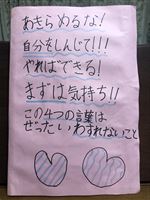 あきらめるな!
自分をしんじて!!!
やればできる!
まずは気持ち!!
この4つの言葉は
ぜったいわすれないこと